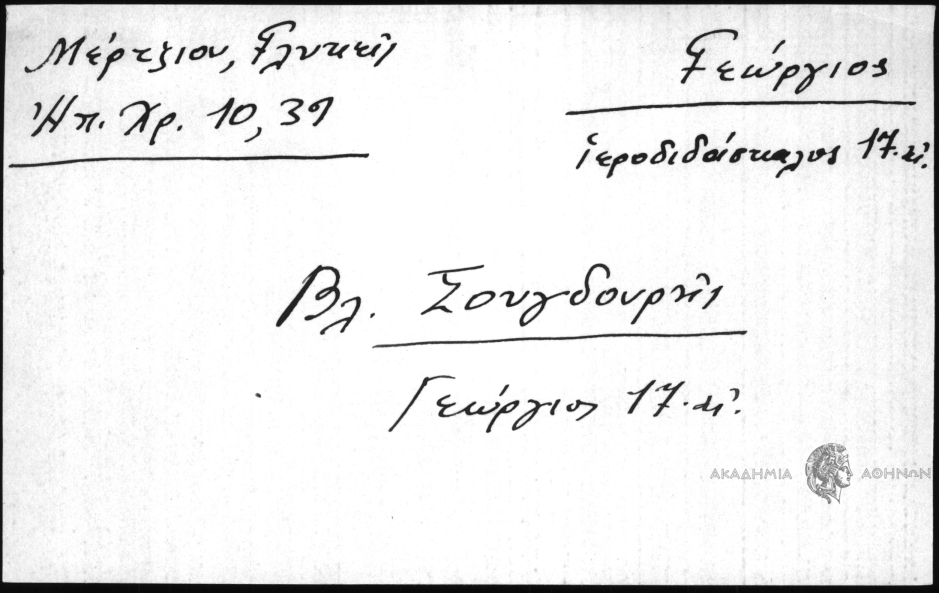 Μέρτζιου, Γλυκεῖς
Ἠπ. Χρ. 10, 39
Γεώργιος
ἱεροδιδάσκαλος 17. αἰ.
Βλ. Σουγδουρῆς
Γεώργιος 17. αἰ.
ΑΚΑΔΗΜΙΑ ΑΘΗΝΩΝ